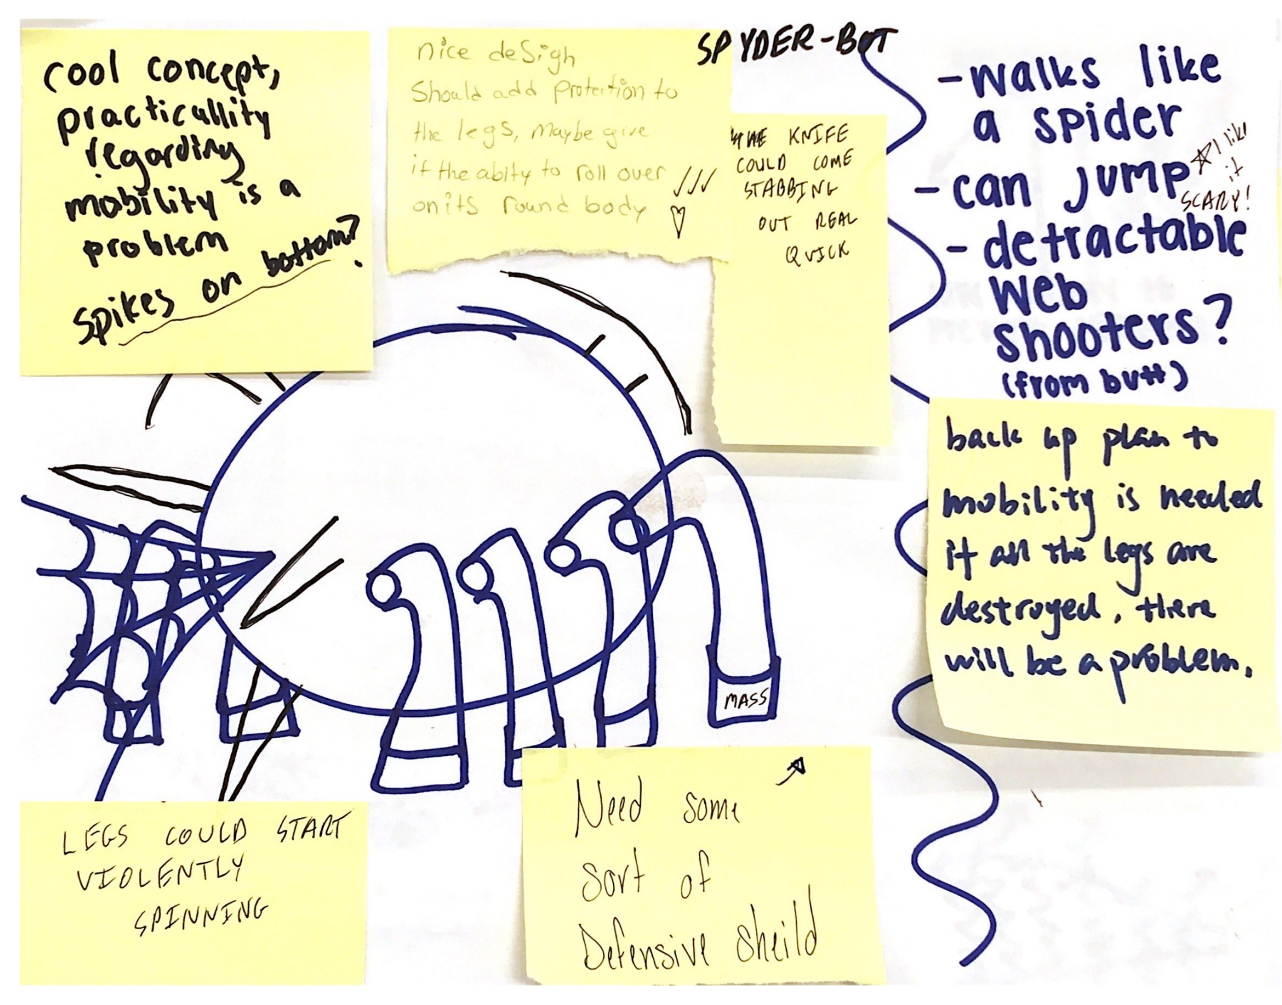 cool concept,
practicallity
regarding
mobility is a
problem
spikes on bottom?
nice design
Should add protection to
the legs, maybe give
it the abity to roll over
on its round body
SPYDER-BOT
THE KNIFE
COULD COME
STABBING
OUT REAL
QUICK
- walks like
a spider
- can jump
☆ I like
it
SCARY!
- detractable
web
shooters?
(from butt)
back up plan to
mobility is needed
if all the legs are
destroyed, there
will be a problem.
MASS
LEGS COULD START
VIOLENTLY
SPINNING
Need some
sort of
Defensive sheild